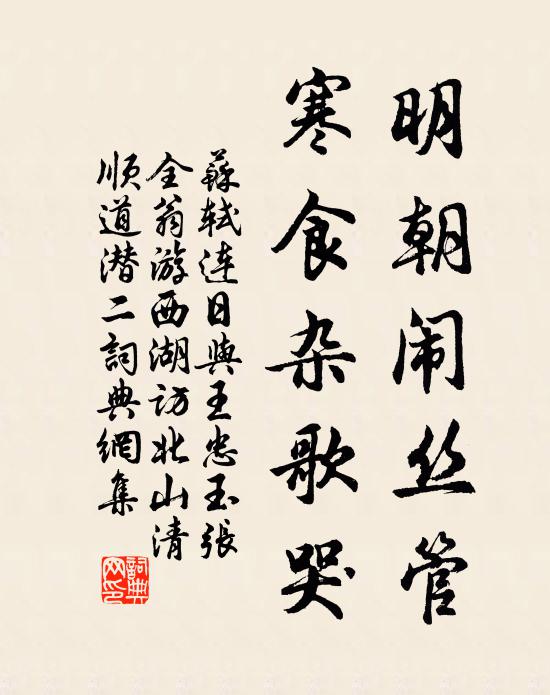 明朝闹丝管
寒食杂歌哭
蘇轼连日與王忠玉張
全翁游西湖访北山清
顺道潜二詞典網集
詞典网印